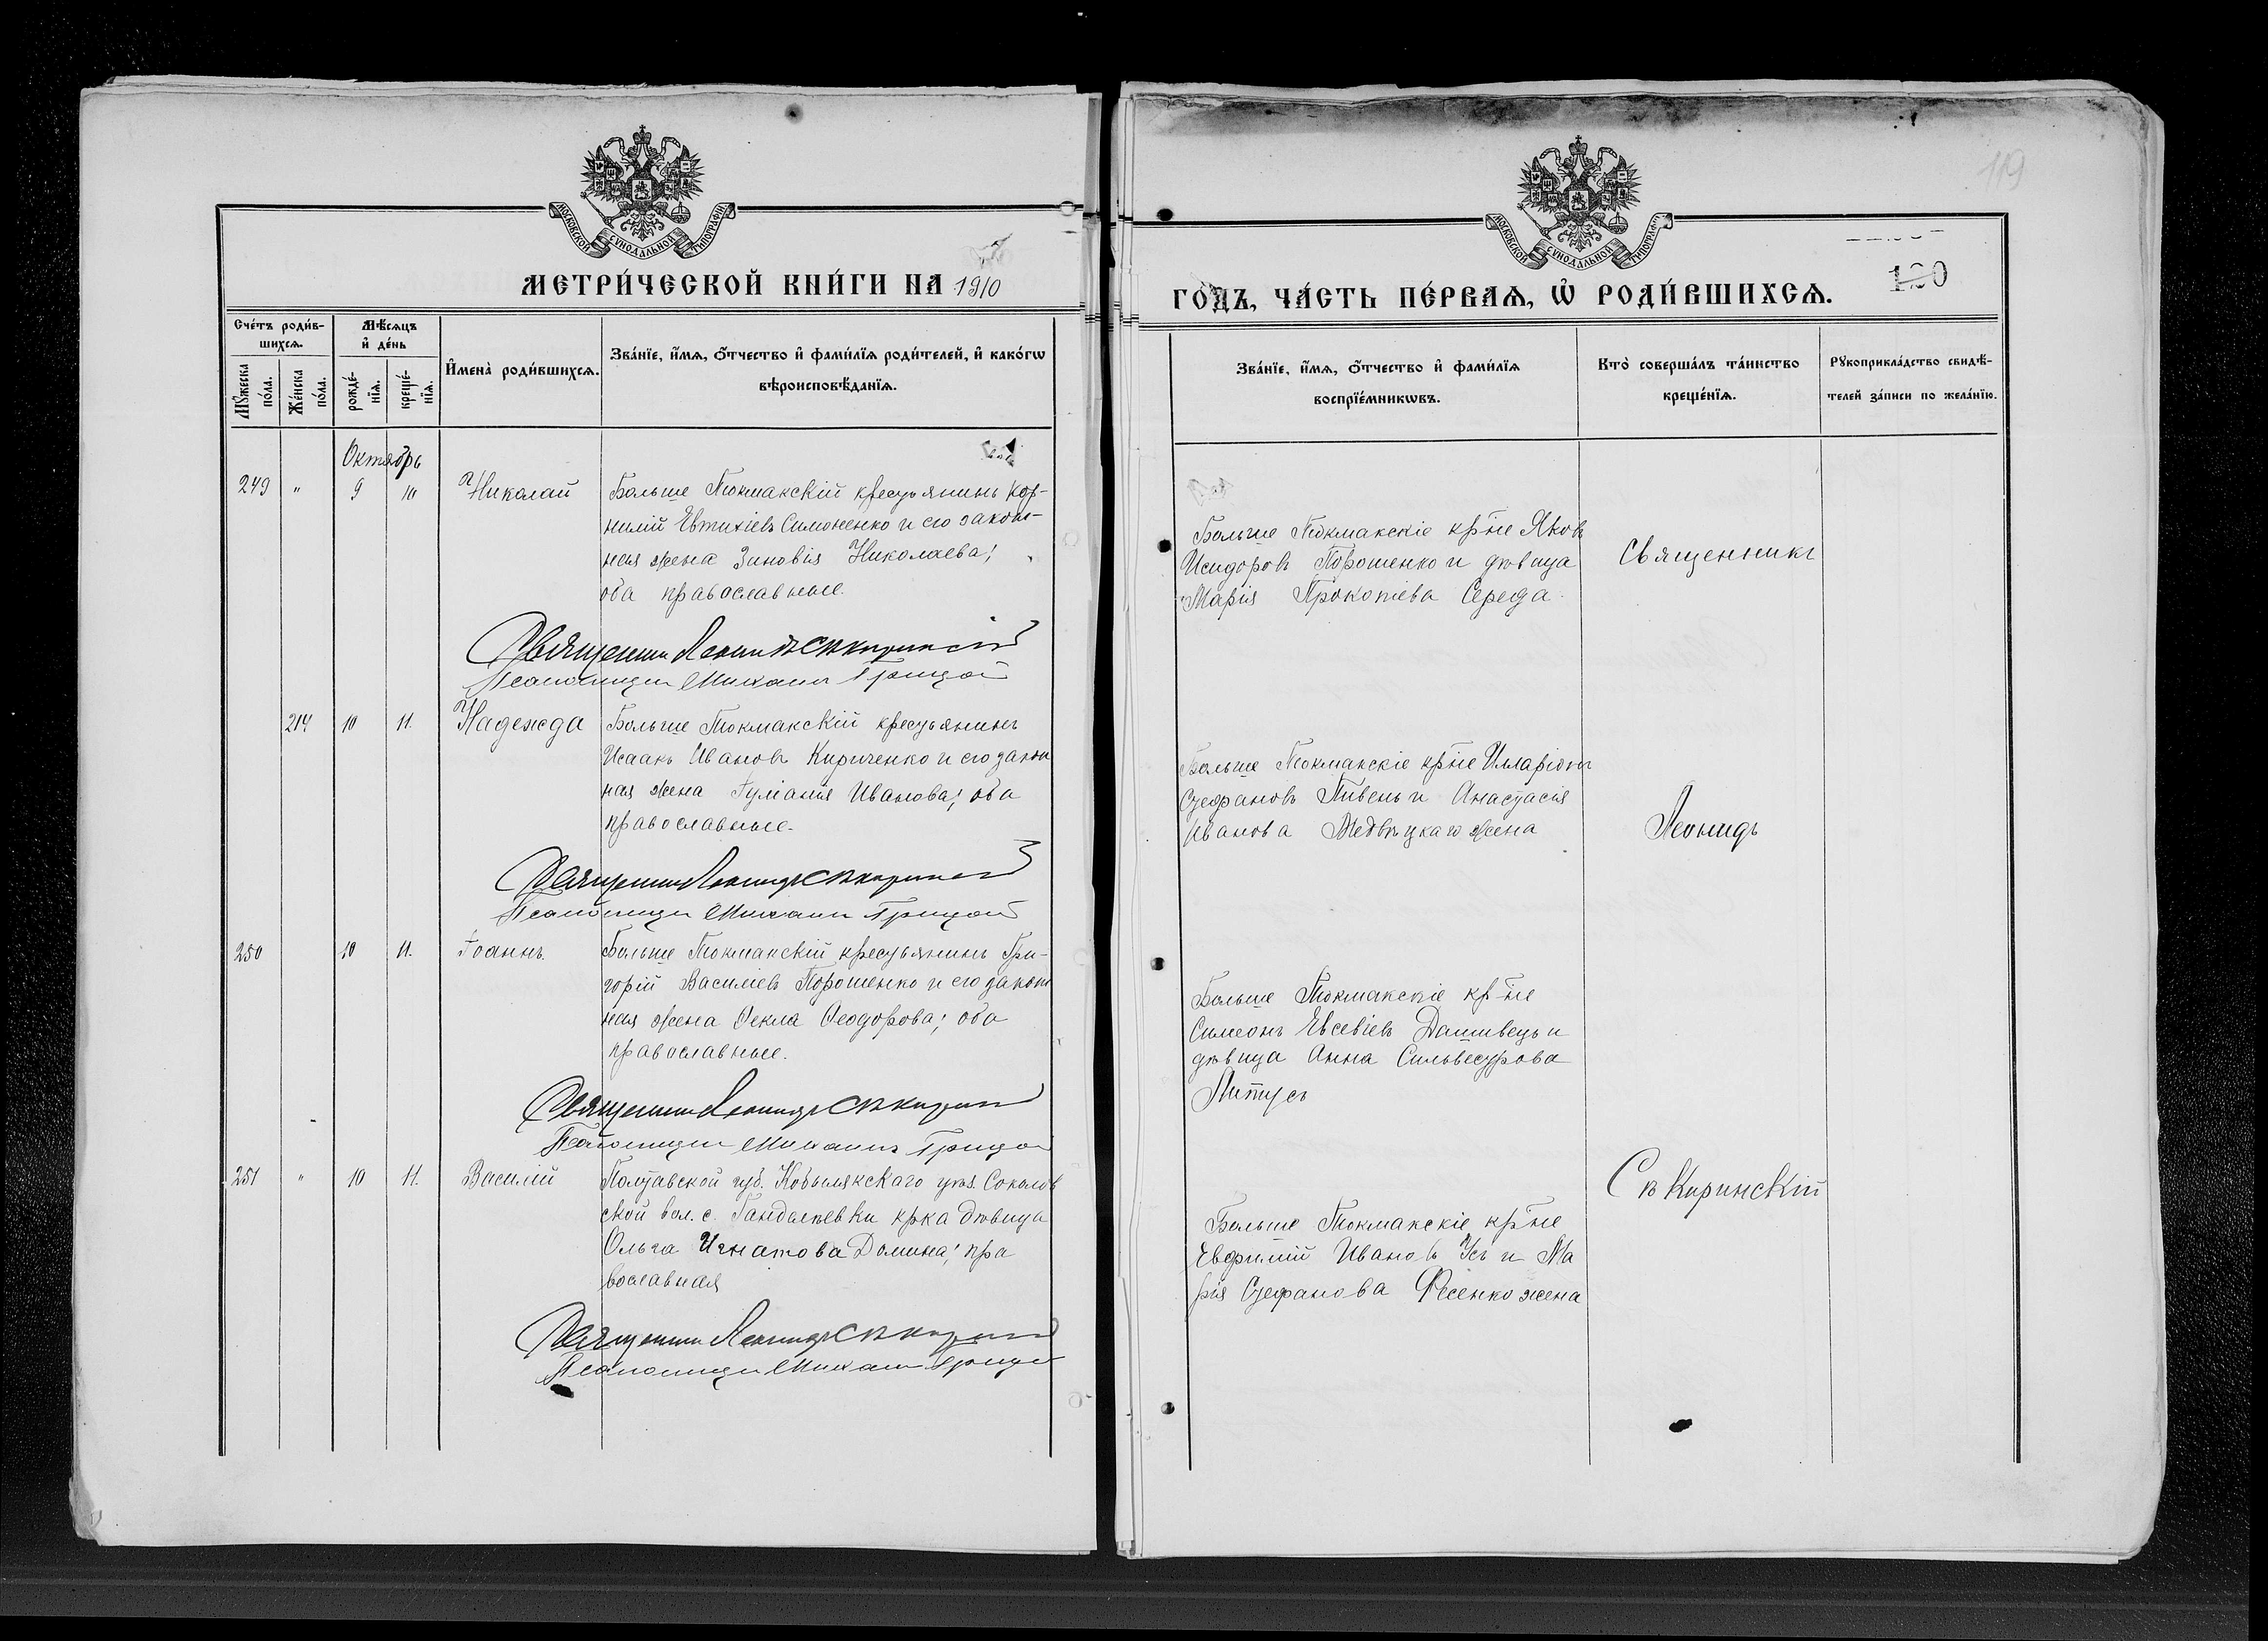 МОСКОВСКОЙ СѴНОДАЛЬНОЙ ТИПОГРАФІИ
МЕТРИ́ЧЕСКОЙ КНИ́ГИ НА 1910
Сче́тъ роди́в-
шихсѧ.
Мꙋ́жеска по́ла.
Же́нска по́ла.
Мѣ́сѧцъ
и҆ де́нь
рожде́-
нїѧ.
креще́-
нїѧ.
И҆мена̀ роди́вшихсѧ.
Зва́нїе, и҆́мѧ, ѻ҆́тчество и҆ фами́лїѧ роди́телей, и҆ како́гѡ
вѣроисповѣ́данїѧ.
Октябрь
249 " 9 10 Николай Больше Токмакскій крестьянинъ Кор-
нилій Евтихіевъ Симоненко и его закон-
ная жена Зиновія Николаева;
оба православные.
Священникъ Леонидъ Скѣкиринскій
Псаломщикъ Михаилъ Грицай
214 10 11. Надежда Больше Токмакскій крестьянинъ
Исаакъ Ивановъ Кириченко и его закон
ная жена Іуліанія Иванова; оба
православные.
Священникъ Леонидъ
Псаломщикъ Михаилъ Грицай
250 10 11. Іоаннъ. Больше Токмакскій крестьянинъ Гри-
горій Василіевъ Порошенко и его закон
ная жена Ѳекла Ѳеодорова; оба
православные.
Священникъ Леонидъ
Псаломщикъ Михаилъ Грицай
251 " 10 11. Василій Полтавской губ. Кобылякскаго уѣз. Соколов
ской вол. с. крка дѣвица
Ольга Игнатова Домина; пра
вославная
Священникъ Леонидъ
Псаломщикъ Михаилъ
119
МОСКОВСКОЙ СѴНОДАЛЬНОЙ ТИПОГРАФІИ
120
ГО́ДЪ, ЧА́СТЬ ПЕ́РВАѦ, Ѡ҆ РОДИ́ВШИХСѦ.
Зва́нїе, и҆́мѧ, ѻ҆́тчество и҆ фами́лїѧ
воспрїе́мникѡвъ.
Кто̀ соверша́лъ та́инство
креще́нїѧ.
Рꙋкоприкла́дство свидѣ́-
телей за́писи по жела́нїю.
Больше Токмакскіе кр-не Яковъ
Исидоровъ Порошенко и дѣвица
Марія Прокопіева Середа.
Священникъ
Больше Токмакскіе кр-не Илларіонъ
Стефановъ Пивень и Анастасія
Иванова Медвѣцкаго жена
Леонидъ
Больше Токмакскіе кр-не
Симеонъ Евсевіевъ Дашивецъ и
дѣвица Анна Сильвестрова
Липтусъ
Скѣкиринскій
Больше Токмакскіе кр-не
Евфимій Ивановъ Усъ и Ма
рія Стефанова Фесенко жена